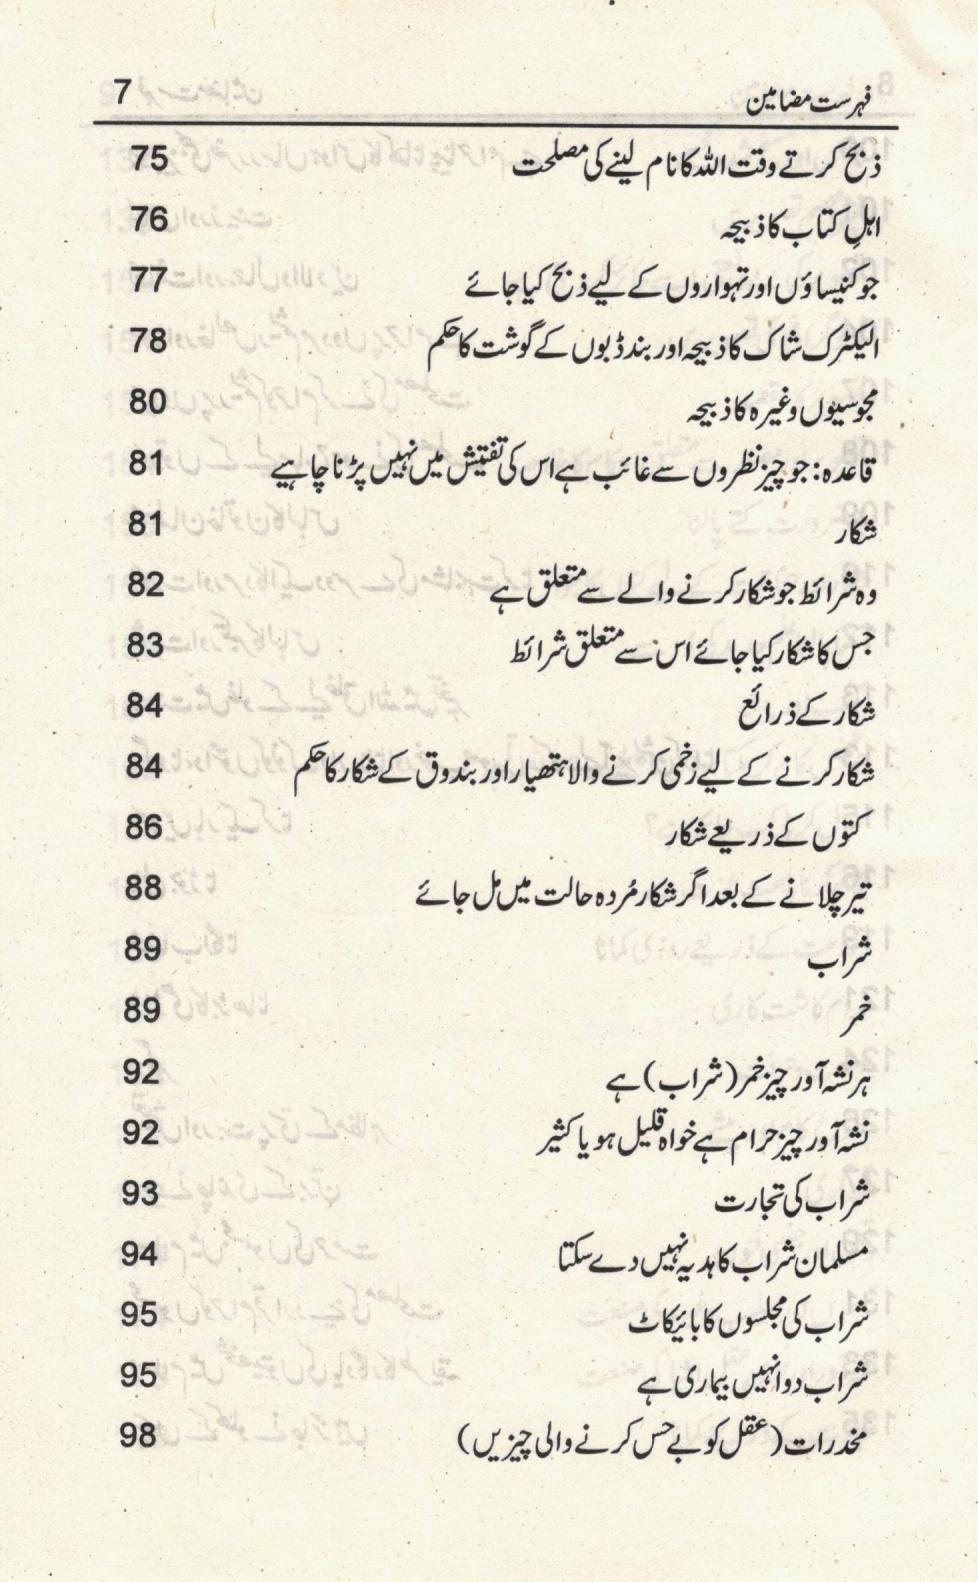 فہرست مضامین 7
ذبح کرتے وقت اللہ کا نام لینے کی مصلحت 75
اہلِ کتاب کا ذبیحہ 76
جو کنیساؤں اور تہواروں کے لیے ذبح کیا جائے 77
الیکٹرک شاک کا ذبیحہ اور بند ڈبوں کے گوشت کا حکم 78
مجوسیوں وغیرہ کا ذبیحہ 80
قاعدہ: جو چیز نظروں سے غائب ہے اس کی تفتیش میں نہیں پڑنا چاہیے 81
شکار 81
وہ شرائط جو شکار کرنے والے سے متعلق ہے 82
جس کا شکار کیا جائے اس سے متعلق شرائط 83
شکار کے ذرائع 84
شکار کرنے کے لیے زخمی کرنے والا ہتھیار اور بندوق کے شکار کا حکم 84
کتوں کے ذریعے شکار 86
تیر چلانے کے بعد اگر شکار مُردہ حالت میں مل جائے 88
شراب 89
خمر 89
ہر نشہ آور چیز خمر (شراب) ہے 92
نشہ آور چیز حرام ہے خواہ قلیل ہو یا کثیر 92
شراب کی تجارت 93
مسلمان شراب کا ہدیہ نہیں دے سکتا 94
شراب کی مجلسوں کا بائیکاٹ 95
شراب دوا نہیں بیماری ہے 95
مخدرات (عقل کو بے حس کرنے والی چیزیں) 98